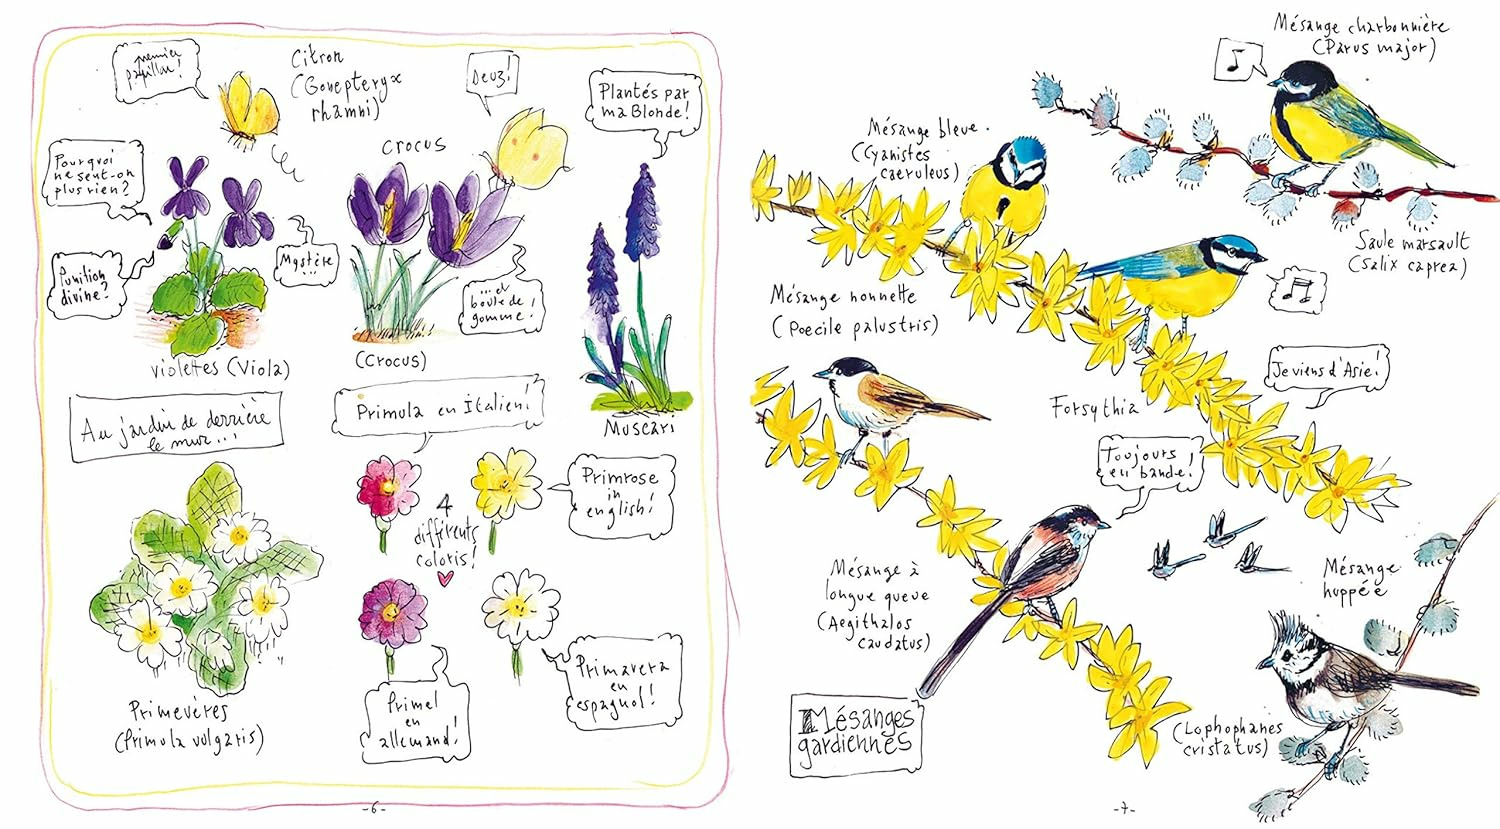 premier
papillon!
Citron
(Gonepteryx
rhamni)
Deuz!
Plantés par
ma Blonde!
Pourquoi
ne sent-on
plus rien?
Crocus
Punition
divine?
Mystère
...
...et
boule de
gomme!
violettes (Viola)
(Crocus)
Muscari
Au jardin de derrière
le mur...
Primula en Italien!
4
différents
coloris!
Primrose
in
english!
Primevères
(Primula vulgaris)
Primel
en
allemand!
Primavera
en
espagnol!
-6-
Mésange charbonnière
(Parus major)
Mésange bleue.
(Cyanistes
caeruleus)
Saule marsault
(Salix caprea)
Mésange nonnette
(Poecile palustris)
Je viens d'Asie!
Forsythia
Toujours
en bande!
Mésange à
longue queue
(Aegithalos
caudatus)
Mésange
huppée
Mésanges
gardiennes
(Lophophanes
cristatus)
-7-